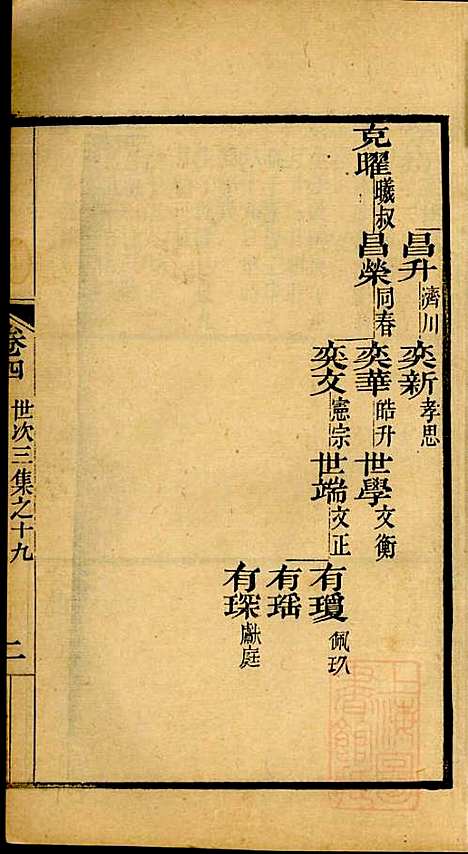 昌升 濟川 奕新 孝思
克曜 曦叔 昌榮 同春 奕華 皓升 世學 文衡
奕文 憲宗 世端 文正 有瓊 佩玖
有瑶
有琛 獻庭
卷四 世次三集之十九 二